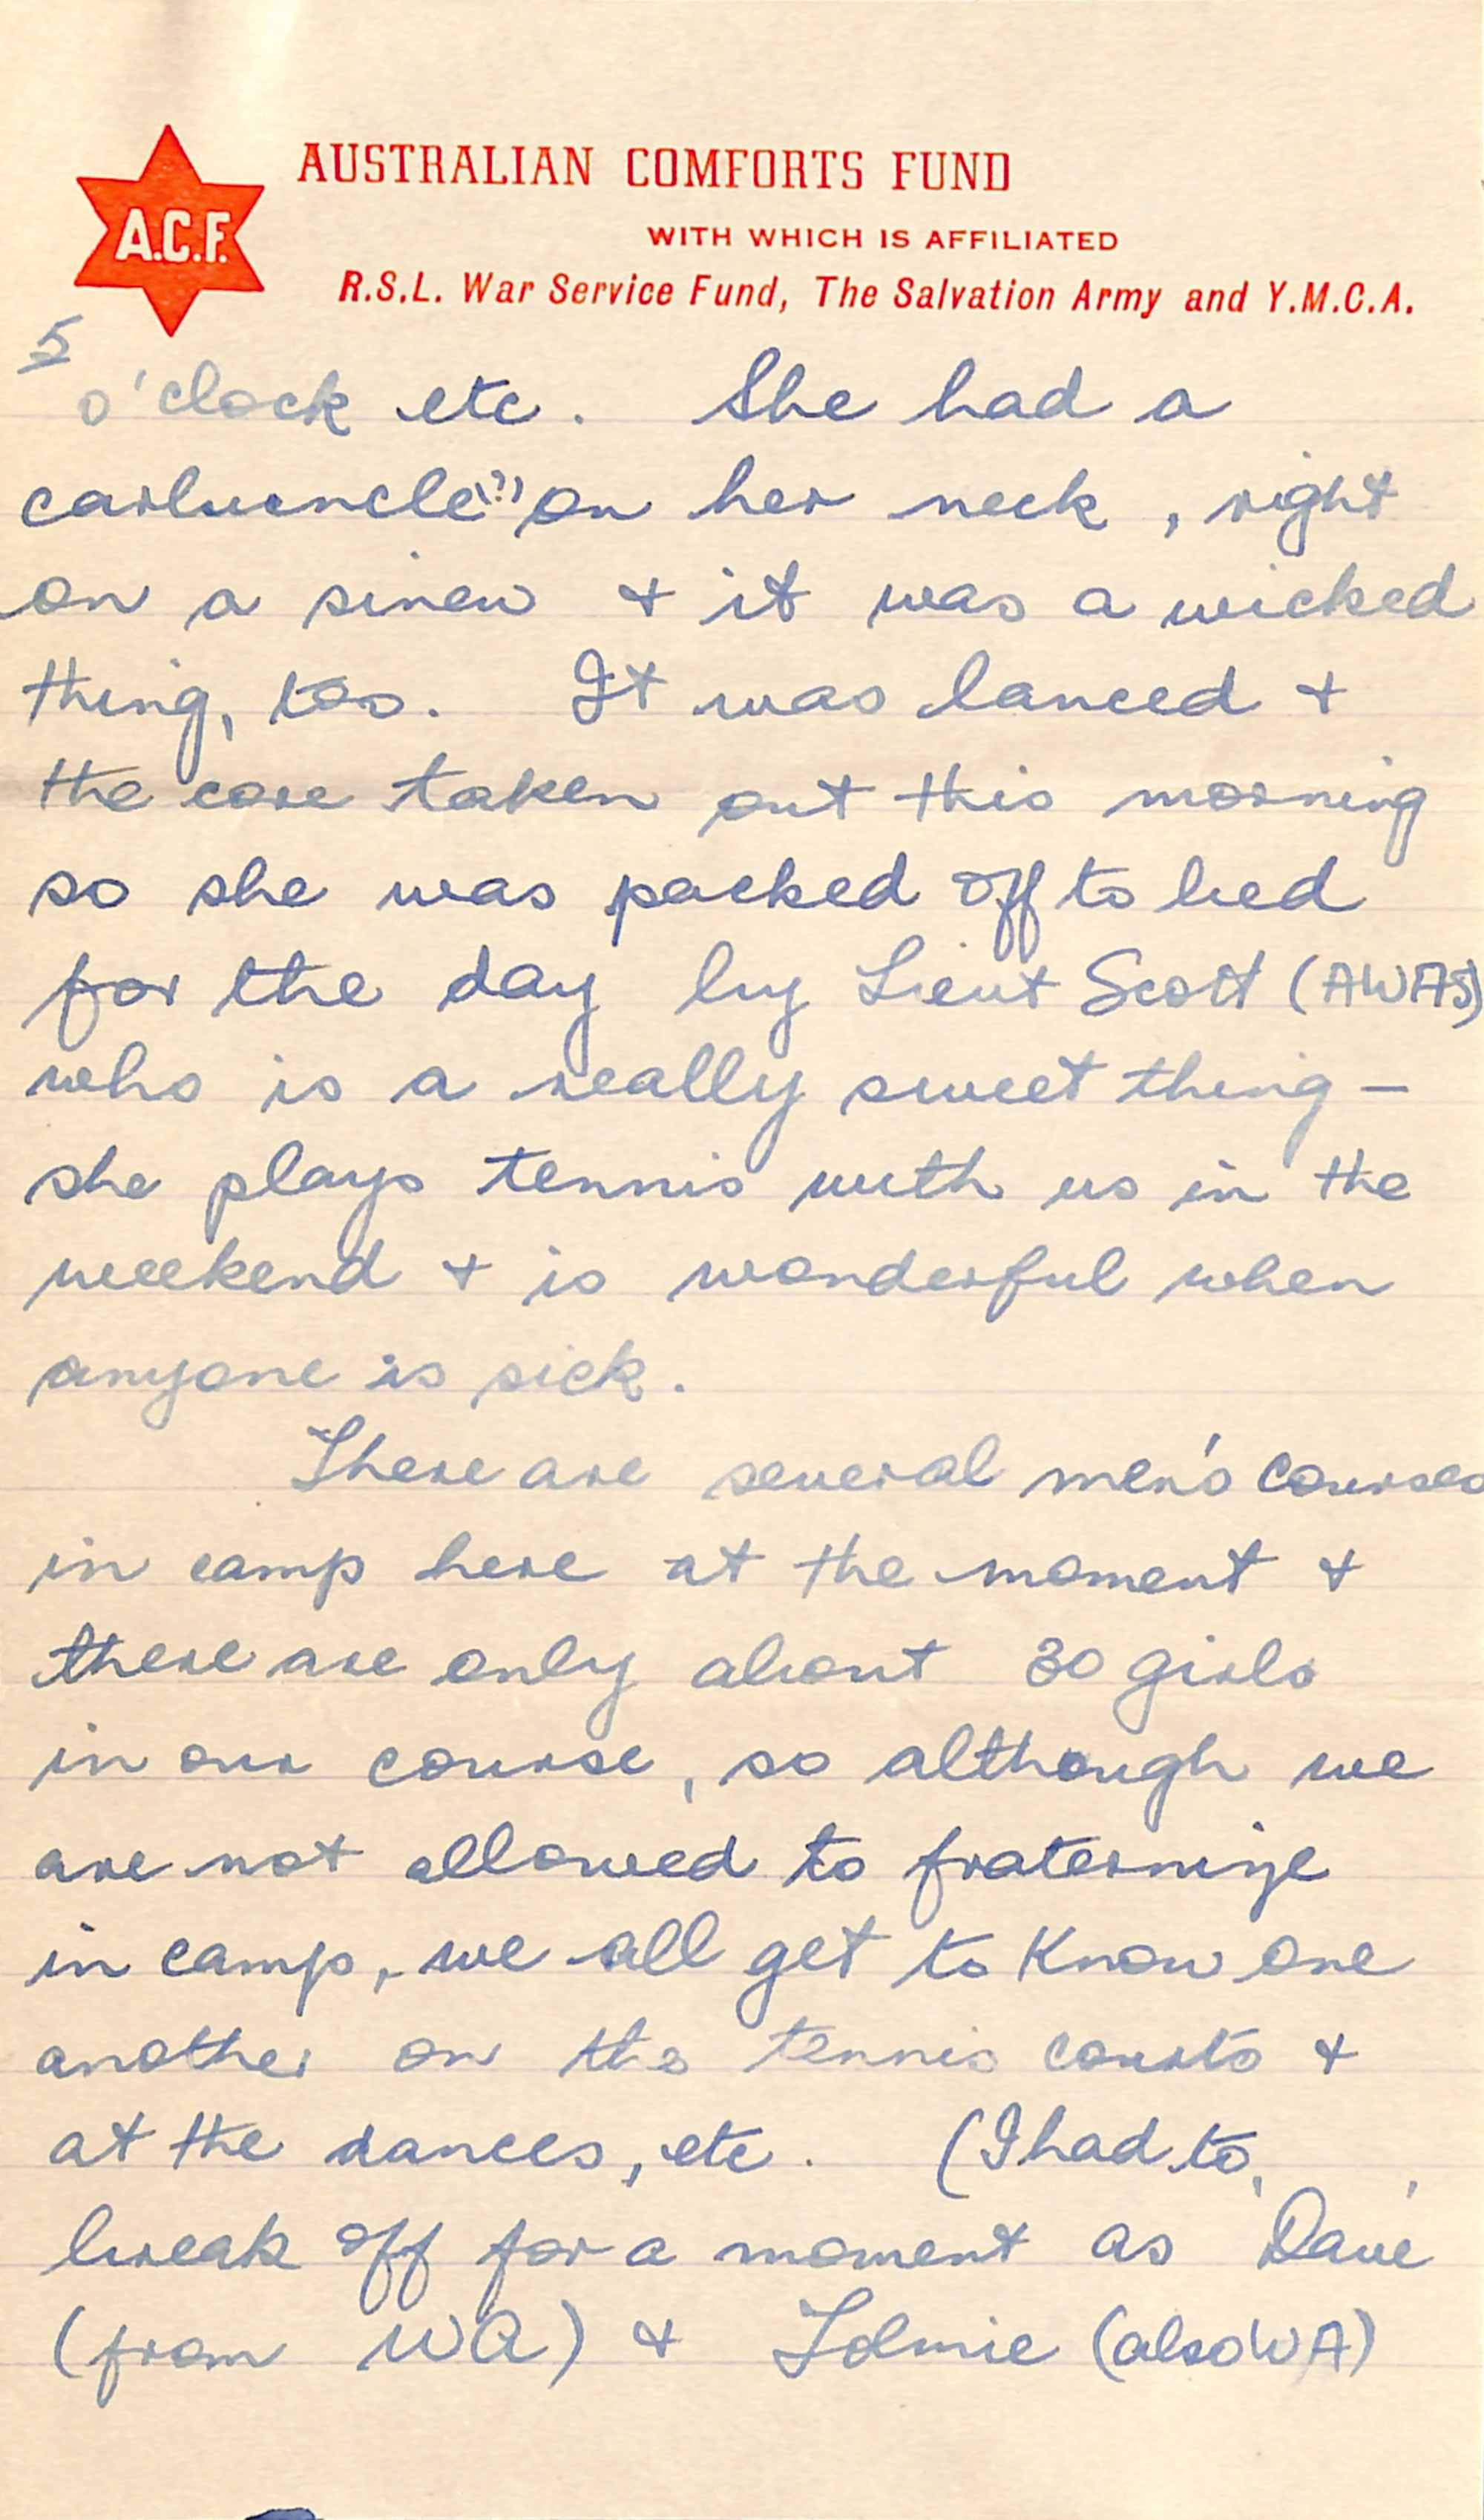 AUSTRALIAN COMFORTS FUND
A.C.F.
WITH WHICH IS AFFILIATED
R.S.L. War Service Fund, The Salvation Army and Y.M.C.A.
5
o'clock etc. She had a
carbuncle"(?)" on her neck, right
on a sinew & it was a wicked
thing, too. It was lanced &
the core taken out this morning
so she was packed off to bed
for the day by Lieut Scott (AWAS)
who is a really sweet thing –
she plays tennis with us in the
weekend & is wonderful when
anyone is sick.
There are several men's courses
in camp here at the moment &
there are only about 30 girls
in our course, so although we
are not allowed to fraternize
in camp, we all get to know one
another on the tennis courts &
at the dances, etc. (I had to
break off for a moment as 'Dave'
(from WA) & Tolmie (also WA)